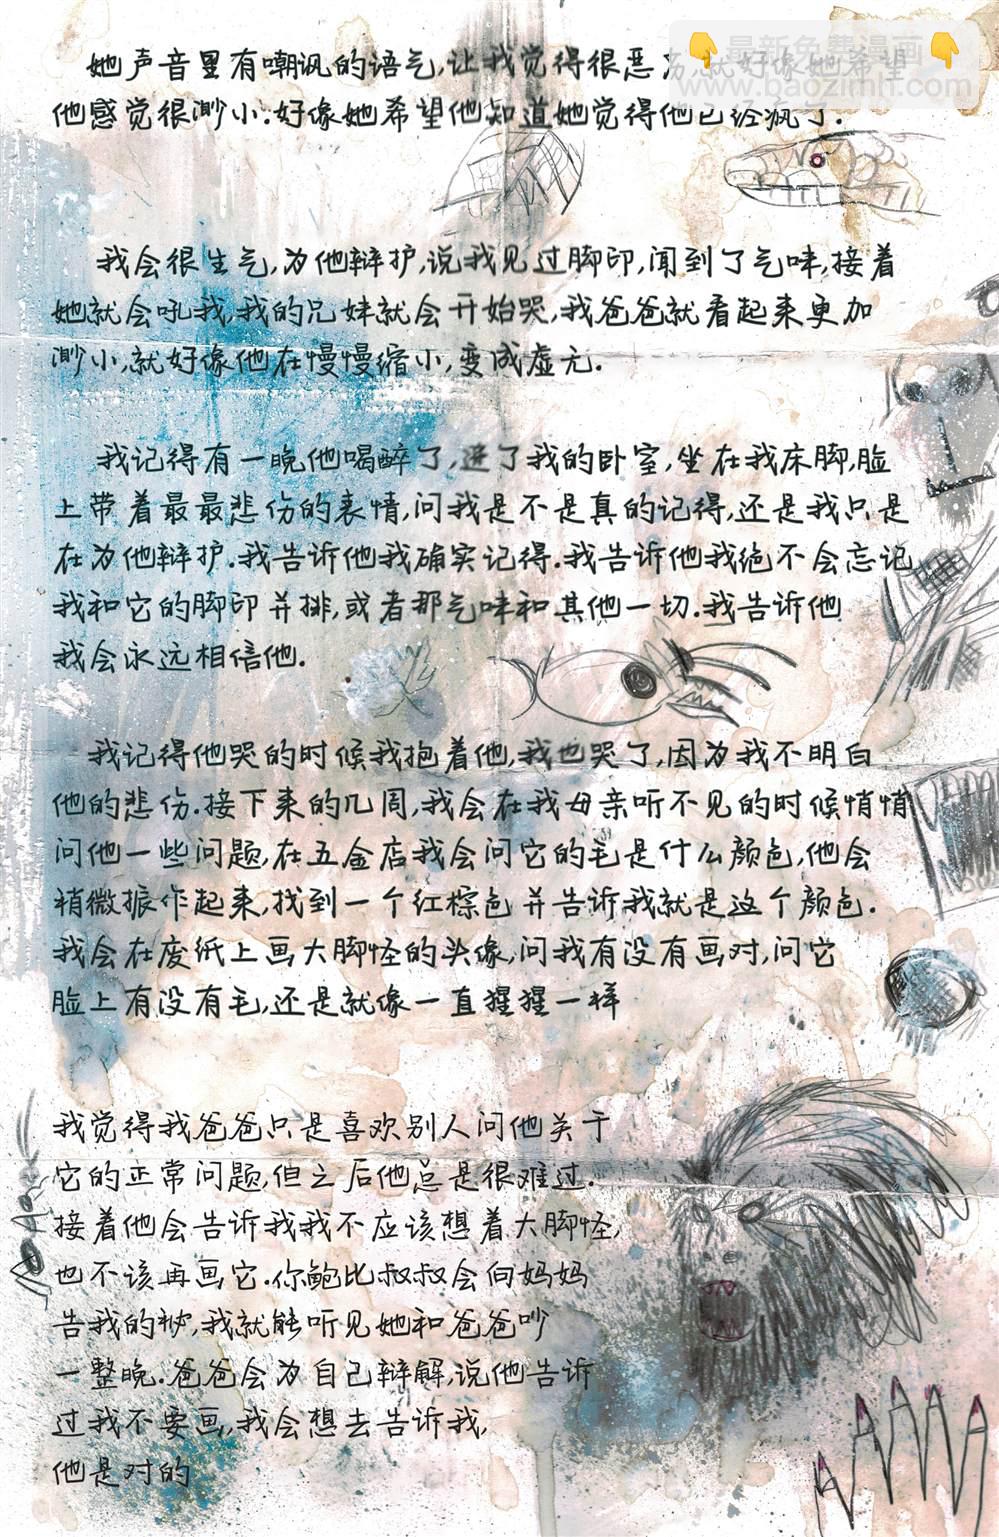 最新免费漫画
www.baozimh.com
她声音里有嘲讽的语气,让我觉得很恶,就好像她希望
他感觉很渺小.好像她希望他知道她觉得他已经疯了.
我会很生气,为他辩护,说我见过脚印,闻到了气味,接着
她就会吼我,我的兄妹就会开始哭,我爸爸就看起来更加
渺小,就好像他在慢慢缩小,变成虚无.
我记得有一晚他喝醉了,进了我的卧室,坐在我床脚,脸
上带着最最悲伤的表情,问我是不是真的记得,还是我只是
在为他辩护.我告诉他我确实记得.我告诉他我绝不会忘记
我和它的脚印并排,或者那气味和其他一切.我告诉他
我会永远相信他.
我记得他哭的时候我抱着他,我也哭了,因为我不明白
他的悲伤.接下来的几周,我会在我母亲听不见的时候悄悄
问他一些问题,在五金店我会问它的毛是什么颜色,他会
稍微振作起来,找到一个红棕色并告诉我就是这个颜色.
我会在废纸上画大脚怪的头像,问我有没有画对,问它
脸上有没有毛,还是就像一直猩猩一样
我觉得我爸爸只是喜欢别人问他关于
它的正常问题,但之后他总是很难过.
接着他会告诉我我不应该想着大脚怪,
也不该再画它.你鲍比叔叔会向妈妈
告我的秘,我就能听见她和爸爸吵
一整晚.爸爸会为自己辩解,说他告诉
过我不要画,我会想去告诉我,
他是对的